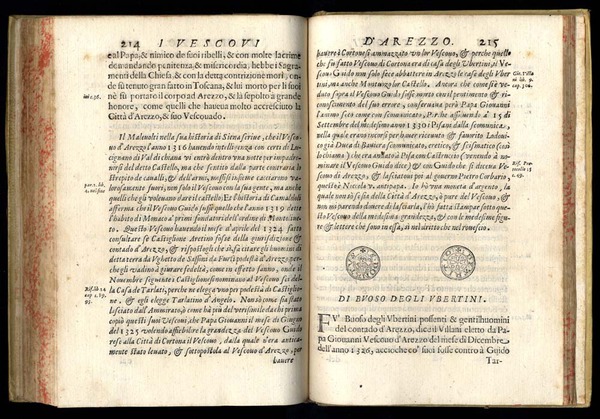 214 I VESCOVI
e al Papa, & nimico de suoi ribelli, & con molte lacrime
domandando penitenza, & misericordia, hebbe i Sagra-
menti della Chiesa, & con la detta contrizione morì, on-
de fu tenuto gran fatto in Toscana, & lui morto per li suoi
ne fu portato il corpo ad Arezzo, & là sepolto à grande
honore, come quelli che haueua molto accresciuto la
Città d'Arezzo, & suo Vescouado.
Il Malauolti nella sua historia di Siena scriue, che il Vesco-
uo d'Arezzo l'anno 1316 hauendo intelligenza con certi di Lu-
cignano di Val di chiana vi entrò dentro vna notte per impadro-
nirsi del detto Castello, ma che sentito dalla parte contraria lo
strepito de caualli, & dell'armi, messisi insieme cacciarono va-
lorosamente fuori, non solo il Vescouo con la sua gente, ma anche
quelli che gli voleuano dare il castello. Et l'historia di Camaldoli
afferma che il Vescouo Guido fusse quello che l'anno 1319 dette
l'habito di Monaco a' primi fundatori dell'ordine di Monte oliue-
to. Questo Vescouo hauendo il mese d'aprile del 1324 fatto
consultare se Castiglione Aretino fosse della giurisditione &
contado d'Arezzo, & rispostogli che sì, fà citare gli huomini di
detta terra da Vghetto de Sassini da Fursi podestà d'Arezzo, per-
che gli vadino à giurare fedeltà; come in effetto fanno, onde il
Nouembre seguente i Castiglionesi sommettono al Vescouo sei del-
la Casa de Tarlati, perche ne elegga vno per podestà di Castiglio-
ne. & egli elegge Tarlatino d'Angelo. Non sò come sia stato
lasciato dall'Ammirato, come hà più del verisimile da chi prima
copiò questi suoi Vescoui, che Papa Giouanni il mese di Giugno
del 1325 volendo affiebolire la grandezza del Vescouo Guido
rese alla Città di Cortona il Vescouo, dalla quale n'era antica-
mente stato leuato, & sottopostola al Vescouo d'Arezzo, per
hauere
D'AREZZO. 215
hauere i Cortonesi ammazzato vn lor Vescouo, & perche quello
che fu fatto Vescouo di Cortona era di casa degli Vbertini, il Ve-
scouo Guido non solo fece abbattere in Arezzo le case degli Vber-
tini, ma anche Montuozi lor Castello. Ancora che come s'è ve-
duto sopra il Vescouo Guido fosse morto con il pentimento & ri-
conoscimento del suo errore, conseruaua però Papa Giouanni
l'animo seco come con scomunicato, Perche assoluendo à 15 di
Settembre del medesimo anno 1330 i Pisani dalla scomunica,
nella quale erano incorsi per hauer riceuuto & fauorito Lodoui-
go già Duca di Bauiera scomunicato, eretico, & scismatico (così
lo chiama) che era andato à Pisa con Castruccio (venendo à no-
minare il Vescouo dice) & con Guido che si diceua già Ve-
scouo di Arezzo, & lasciatoui poi al gouerno Pietro Corbario,
questi è Niccola v. antipapa. Io hò vna moneta d'argento, la
quale non sò se sia della Città d'Arezzo, ò pure del Vescouo, &
non mi parendo douere di lasciarla, l'hò fatta stampare sotto que-
sto Vescouo della medesima grandezza, & con le medesime figu-
re & lettere che sono in essa, sì nel diritto che nel rouescio.
DI BVOSO DEGLI VBERTINI.
FV Buoso degli Vbertini possenti & gentilhuomini
del contado d'Arezzo, dice il Villani eletto da Pa-
pa Giouanni Vescouo d'Arezzo del mese di Dicembre
dell'anno 1326, acciocche co' suoi fusse contro à Guido
Tar-